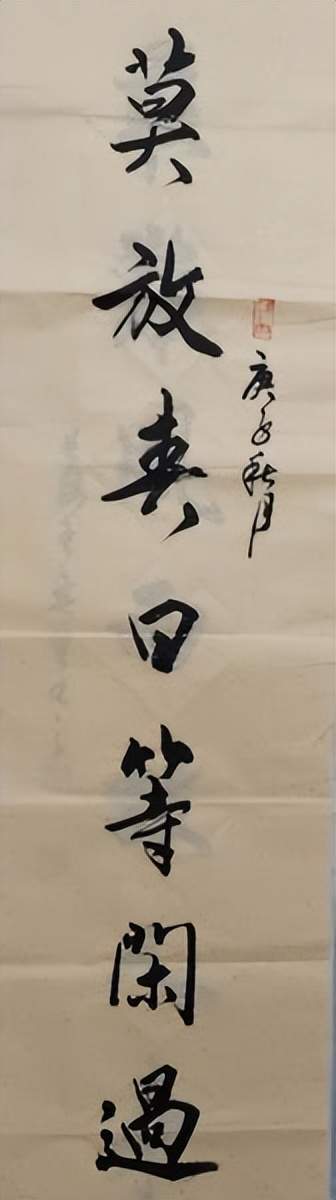 庚子秋月
莫放春日等閑過